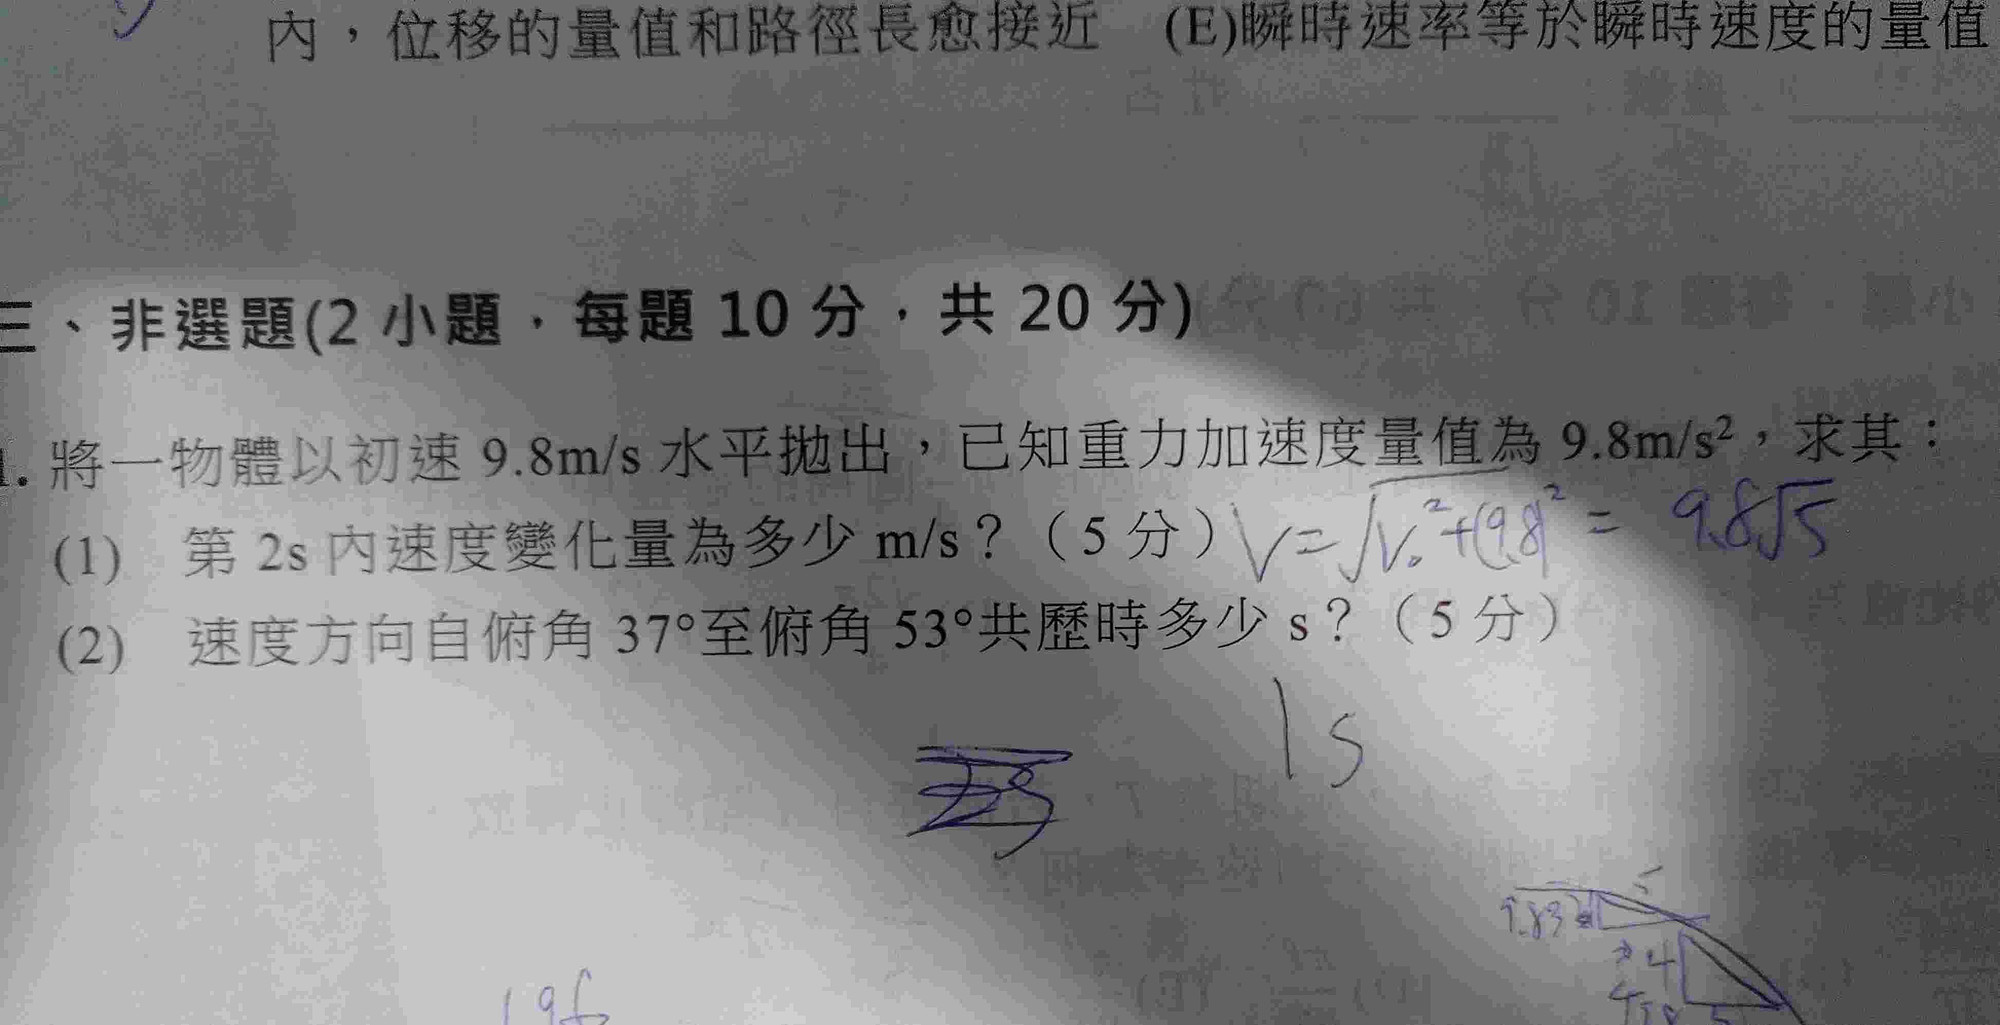 內，位移的量值和路徑長愈接近 (E)瞬時速率等於瞬時速度的量值
三、非選題(2 小題，每題 10 分，共 20 分)
1. 將一物體以初速 9.8m/s 水平拋出，已知重力加速度量值為 9.8m/s²，求其：
(1) 第 2s 內速度變化量為多少 m/s？（5 分）V=√V₀²+(9.8)² = 9.8√5
(2) 速度方向自俯角 37°至俯角 53°共歷時多少 s？（5 分）
1 s
196